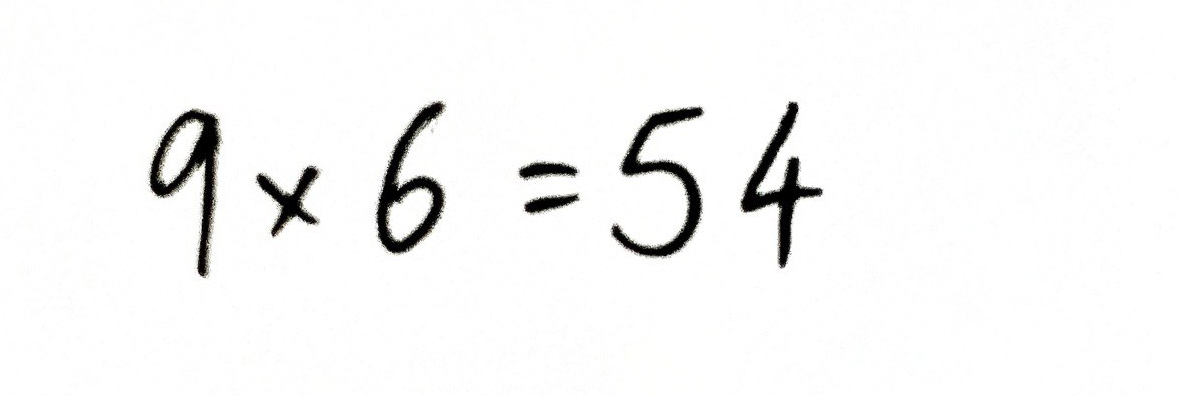 9 × 6 = 54